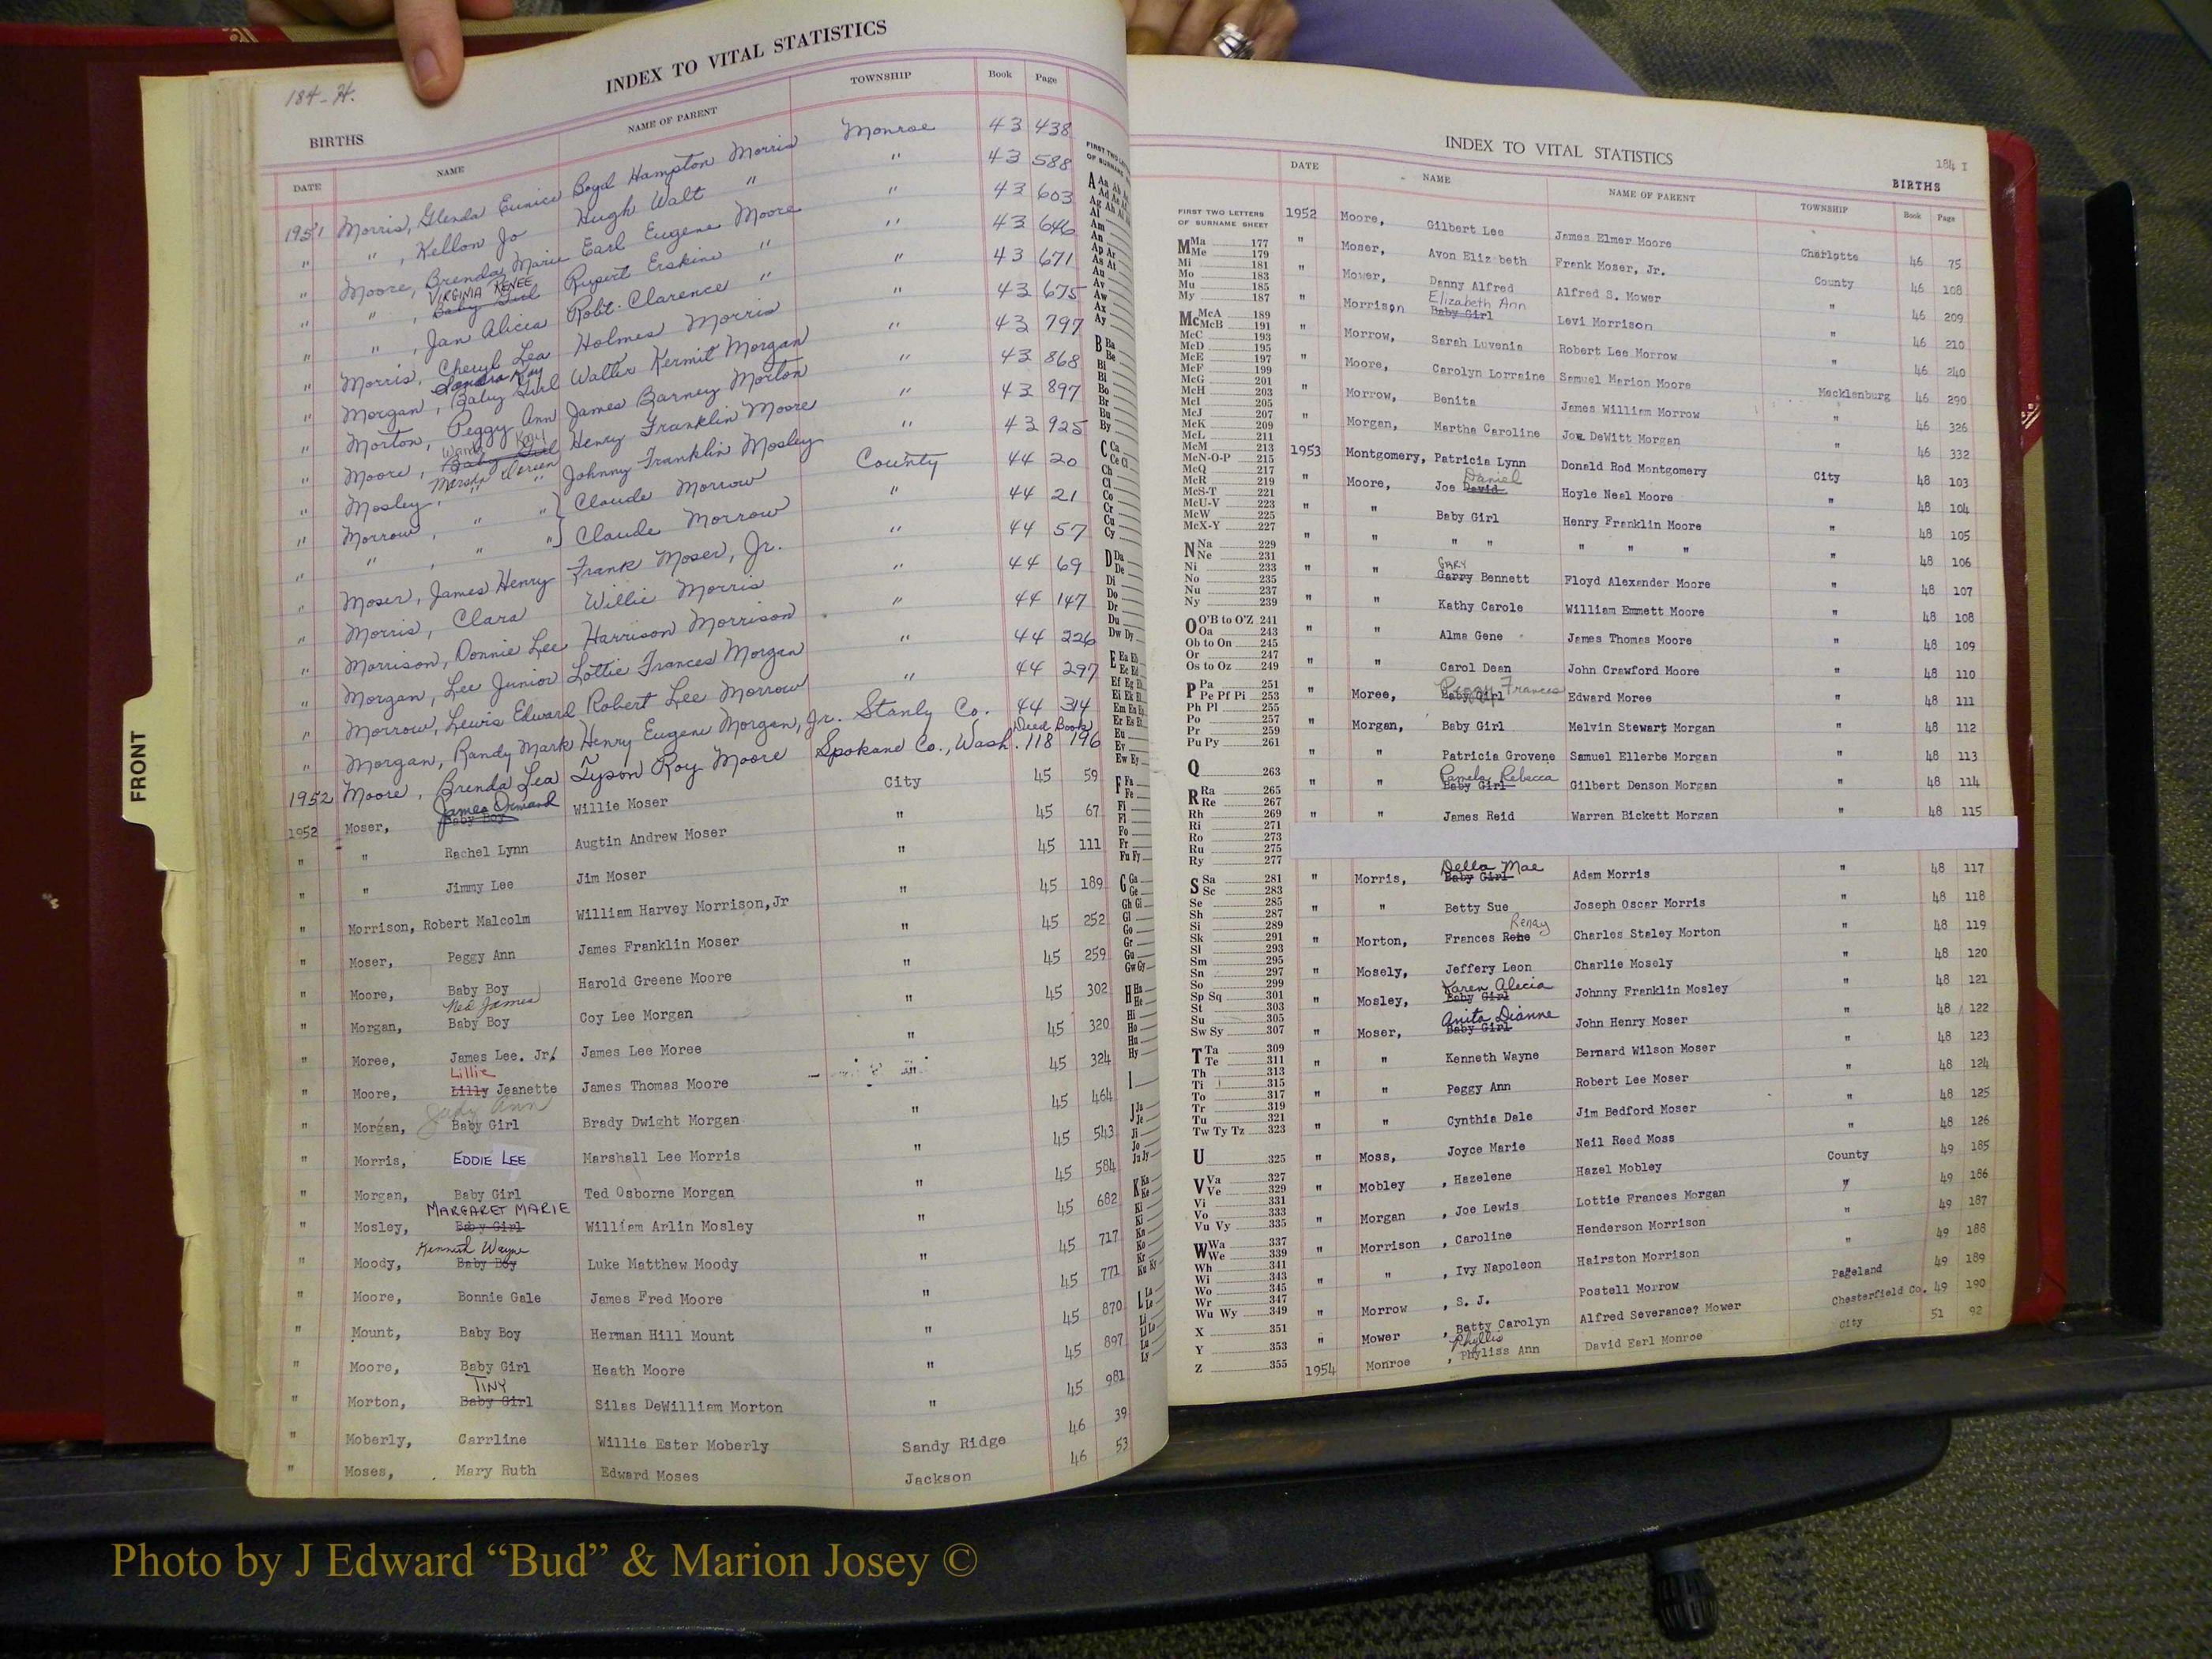 184-H.
INDEX TO VITAL STATISTICS
BIRTHS
DATE NAME NAME OF PARENT TOWNSHIP Book Page
1951 Morris, Glenda Eunice Boyd Hampton Morris Monroe 43 438
" " , Kellon Jo Hugh Walt " " 43 588
" Moore, Brenda Marie Earl Eugene Moore " 43 603
VIRGINIA RENEE
" " , Baby Girl Rupert Erskine " " 43 646
" " , Jan Alicia Robt. Clarence " " 43 671
" Morris, Cheryl Lea Holmes Morris " 43 675
Sandra Kay
" Morgan, Baby Girl Walter Kermit Morgan " 43 797
" Morton, Peggy Ann James Barney Morton " 43 868
Kay
" Moore, Baby Girl Henry Franklin Moore " 43 897
" Mosley, " " Johnny Franklin Mosley " 43 925
" Morrow, " " } Claude Morrow County 44 20
" " , " " } Claude Morrow " 44 21
" Moser, James Henry Frank Moser, Jr. " 44 57
" Morris, Clara Willie Morris " 44 69
" Morrison, Donnie Lee Harrison Morrison " 44 147
" Morgan, Lee Junior Lottie Frances Morgan " 44 226
" Morrow, Lewis Edward Robert Lee Morrow " 44 297
" Morgan, Randy Mark Henry Eugene Morgan, Jr. Stanly Co. 44 314
Deed Book
1952 Moore, Brenda Lea Tyson Roy Moore Spokane Co., Wash. 118 196
James Ormand
1952 Moser, Baby Boy Willie Moser City 45 59
" " Rachel Lynn Augtin Andrew Moser " 45 67
" " Jimmy Lee Jim Moser " 45 111
" Morrison, Robert Malcolm William Harvey Morrison, Jr " 45 189
" Moser, Peggy Ann James Franklin Moser " 45 252
" Moore, Baby Boy Harold Greene Moore " 45 259
Ned James
" Morgan, Baby Boy Coy Lee Morgan " 45 302
" Moree, James Lee. Jr. James Lee Moree " 45 320
Lillie
" Moore, Lilly Jeanette James Thomas Moore " 45 324
Judy Ann
" Morgan, Baby Girl Brady Dwight Morgan " 45 464
" Morris, EDDIE LEE Marshall Lee Morris " 45 543
" Morgan, Baby Girl Ted Osborne Morgan " 45 584
MARGARET MARIE
" Mosley, Baby Girl William Arlin Mosley " 45 682
Kenneth Wayne
" Moody, Baby Boy Luke Matthew Moody " 45 717
" Moore, Bonnie Gale James Fred Moore " 45 771
" Mount, Baby Boy Herman Hill Mount " 45 870
" Moore, Baby Girl Heath Moore " 45 897
TINY
" Morton, Baby Girl Silas DeWilliam Morton " 45 981
" Moberly, Carrline Willie Ester Moberly Sandy Ridge 46 39
" Moses, Mary Ruth Edward Moses Jackson 46 53
FRONT
FIRST TWO
OF SURNAME
A Aa Ab
Al
Am
An
Ap Ar
As At
Au
Av
Aw
Ax
Ay
B Ba
Be
Bi
Bl
Bo
Br
Bu
By
C Ca
Ce Ci
Ch
Cl
Co
Cr
Cu
Cy
D Da
De
Di
Do
Dr
Du
Dw Dy
E Ea Eb
Ec Ed
Eu
Ey
Ew Ey
F Fa
Fe
Fi
Fl
Fo
Fr
Fu Fy
G Ga
Ge
Gh Gi
Gl
Go
Gr
Gu
Gw Gy
H Ha
He
Hi
Ho
Hu
Hy
I
J Ja
Je
Ji
Jo
Ju Jy
K Ka
Ke
Ki
Kl
Kn
Ko
Kr
Ku Ky
L La
Le
Li
Lo
Lu
Ly
184 I
INDEX TO VITAL STATISTICS
BIRTHS
DATE NAME NAME OF PARENT TOWNSHIP Book Page
FIRST TWO LETTERS
OF SURNAME SHEET
M Ma 177
Me 179
Mi 181
Mo 183
Mu 185
My 187
Mc McA 189
McB 191
McC 193
McD 195
McE 197
McF 199
McG 201
McH 203
McI 205
McJ 207
McK 209
McL 211
McM 213
McN-O-P 215
McQ 217
McR 219
McS-T 221
McU-V 223
McW 225
McX-Y 227
N Na 229
Ne 231
Ni 233
No 235
Nu 237
Ny 239
O O'B to O'Z 241
Oa 243
Ob to On 245
Or 247
Os to Oz 249
P Pa 251
Pe Pf Pi 253
Ph Pl 255
Po 257
Pr 259
Pu Py 261
Q 263
R Ra 265
Re 267
Rh 269
Ri 271
Ro 273
Ru 275
Ry 277
S Sa 281
Sc 283
Se 285
Sh 287
Si 289
Sk 291
Sl 293
Sm 295
Sn 297
So 299
Sp Sq 301
St 303
Su 305
Sw Sy 307
T Ta 309
Te 311
Th 313
Ti 315
To 317
Tr 319
Tu 321
Tw Ty Tz 323
U 325
V Va 327
Ve 329
Vi 331
Vo 333
Vu Vy 335
W Wa 337
We 339
Wh 341
Wi 343
Wo 345
Wr 347
Wu Wy 349
X 351
Y 353
Z 355
1952 Moore, Gilbert Lee James Elmer Moore Charlotte 46 75
" Moser, Avon Eliz beth Frank Moser, Jr. County 46 108
" Mower, Danny Alfred Alfred S. Mower " 46 209
Elizabeth Ann
" Morrison Baby Girl Levi Morrison " 46 210
" Morrow, Sarah Luvenia Robert Lee Morrow " 46 240
" Moore, Carolyn Lorraine Samuel Marion Moore Mecklenburg 46 290
" Morrow, Benita James William Morrow " 46 326
" Morgan, Martha Caroline Joe DeWitt Morgan " 46 332
1953 Montgomery, Patricia Lynn Donald Rod Montgomery City 48 103
Daniel
" Moore, Joe David Hoyle Neal Moore " 48 104
" " Baby Girl Henry Franklin Moore " 48 105
" " " " " " " " 48 106
GARY
" " Garry Bennett Floyd Alexander Moore " 48 107
" " Kathy Carole William Emmett Moore " 48 108
" " Alma Gene James Thomas Moore " 48 109
" " Carol Dean John Crawford Moore " 48 110
Peggy Frances
" Moree, Baby Girl Edward Moree " 48 111
" Morgan, Baby Girl Melvin Stewart Morgan " 48 112
" " Patricia Grovene Samuel Ellerbe Morgan " 48 113
Pamela Rebecca
" " Baby Girl Gilbert Denson Morgan " 48 114
" " James Reid Warren Bickett Morgan " 48 115
Della Mae
" Morris, Baby Girl Adam Morris " 48 117
" " Betty Sue Joseph Oscar Morris " 48 118
Renay
" Morton, Frances Rene Charles Staley Morton " 48 119
" Mosely, Jeffery Leon Charlie Mosely " 48 120
Karen Alecia
" Mosley, Baby Girl Johnny Franklin Mosley " 48 121
Anita Dianne
" Moser, Baby Girl John Henry Moser " 48 122
" " Kenneth Wayne Bernard Wilson Moser " 48 123
" " Peggy Ann Robert Lee Moser " 48 124
" " Cynthia Dale Jim Bedford Moser " 48 125
" Moss, Joyce Marie Neil Reed Moss " 48 126
" Mobley , Hazelene Hazel Mobley County 49 185
" Morgan , Joe Lewis Lottie Frances Morgan " 49 186
" Morrison , Caroline Henderson Morrison " 49 187
" " , Ivy Napoleon Hairston Morrison " 49 188
" Morrow , S. J. Postell Morrow Pageland 49 189
" Mower , Betty Carolyn Alfred Severance? Mower Chesterfield Co. 49 190
Phyllis
1954 Monroe , Phyliss Ann David Earl Monroe City 51 92
Photo by J Edward “Bud” & Marion Josey ©